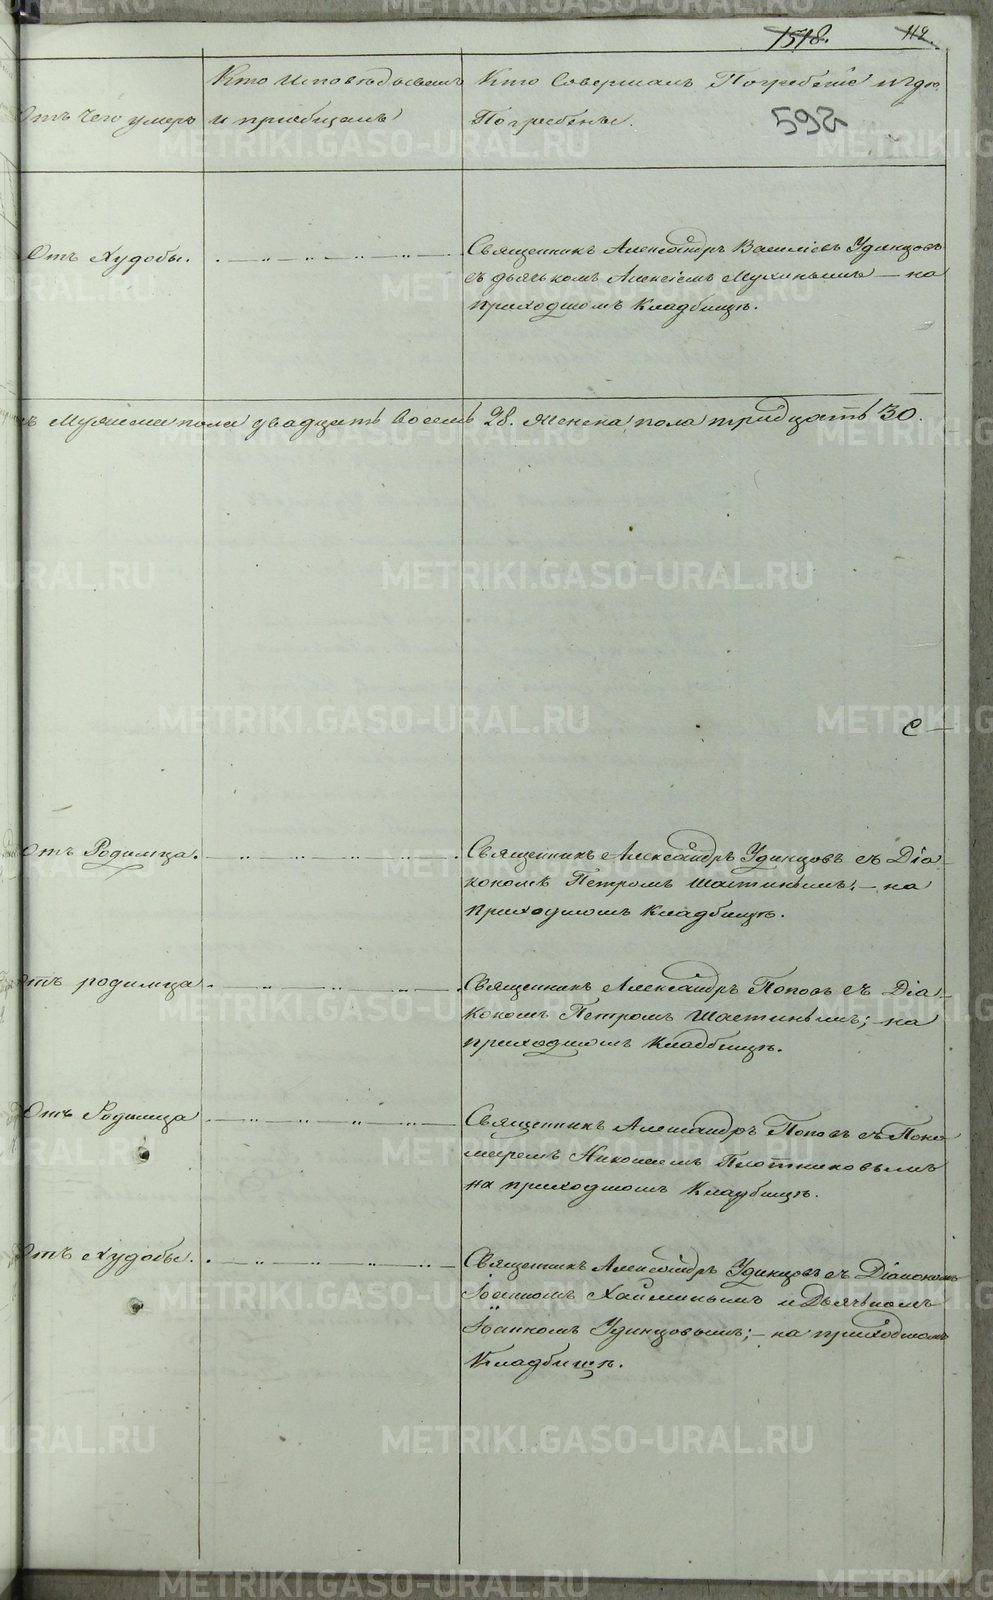 1518. 112.
Отъ чего умеръ
Кто исповѣдывалъ
и приобщалъ
Кто совершалъ Погребеніе и гдѣ
Погребены.
592
Отъ Худобы.
Священникъ Александръ Василіевъ Удинцовъ
съ дьячькомъ Алексіемъ Мухинымъ — на
приходскомъ Кладбищѣ.
ъ Мужеска пола двадцать восемь 28. Женска пола тридцать 30.
С —
Отъ Родимца.
Священникъ Александръ Удинцовъ съ Діа-
кономъ Петромъ Шастинымъ; — на
приходскомъ Кладбищѣ.
Отъ родимца.
Священникъ Александръ Поповъ съ Діа-
кономъ Петромъ Шастинымъ; — на
приходскомъ Кладбищѣ.
Отъ Родимца
Священникъ Александръ Поповъ съ Поно-
маремъ Николаемъ Плотниковымъ
на приходскомъ Кладбищѣ.
Отъ Худобы.
Священникъ Александръ Удинцовъ съ Діакономъ
Іоанномъ Хайминымъ и Дьячькомъ
Іоанномъ Удинцовымъ; — на приходскомъ
Кладбищѣ.
METRIKI.GASO-URAL.RU